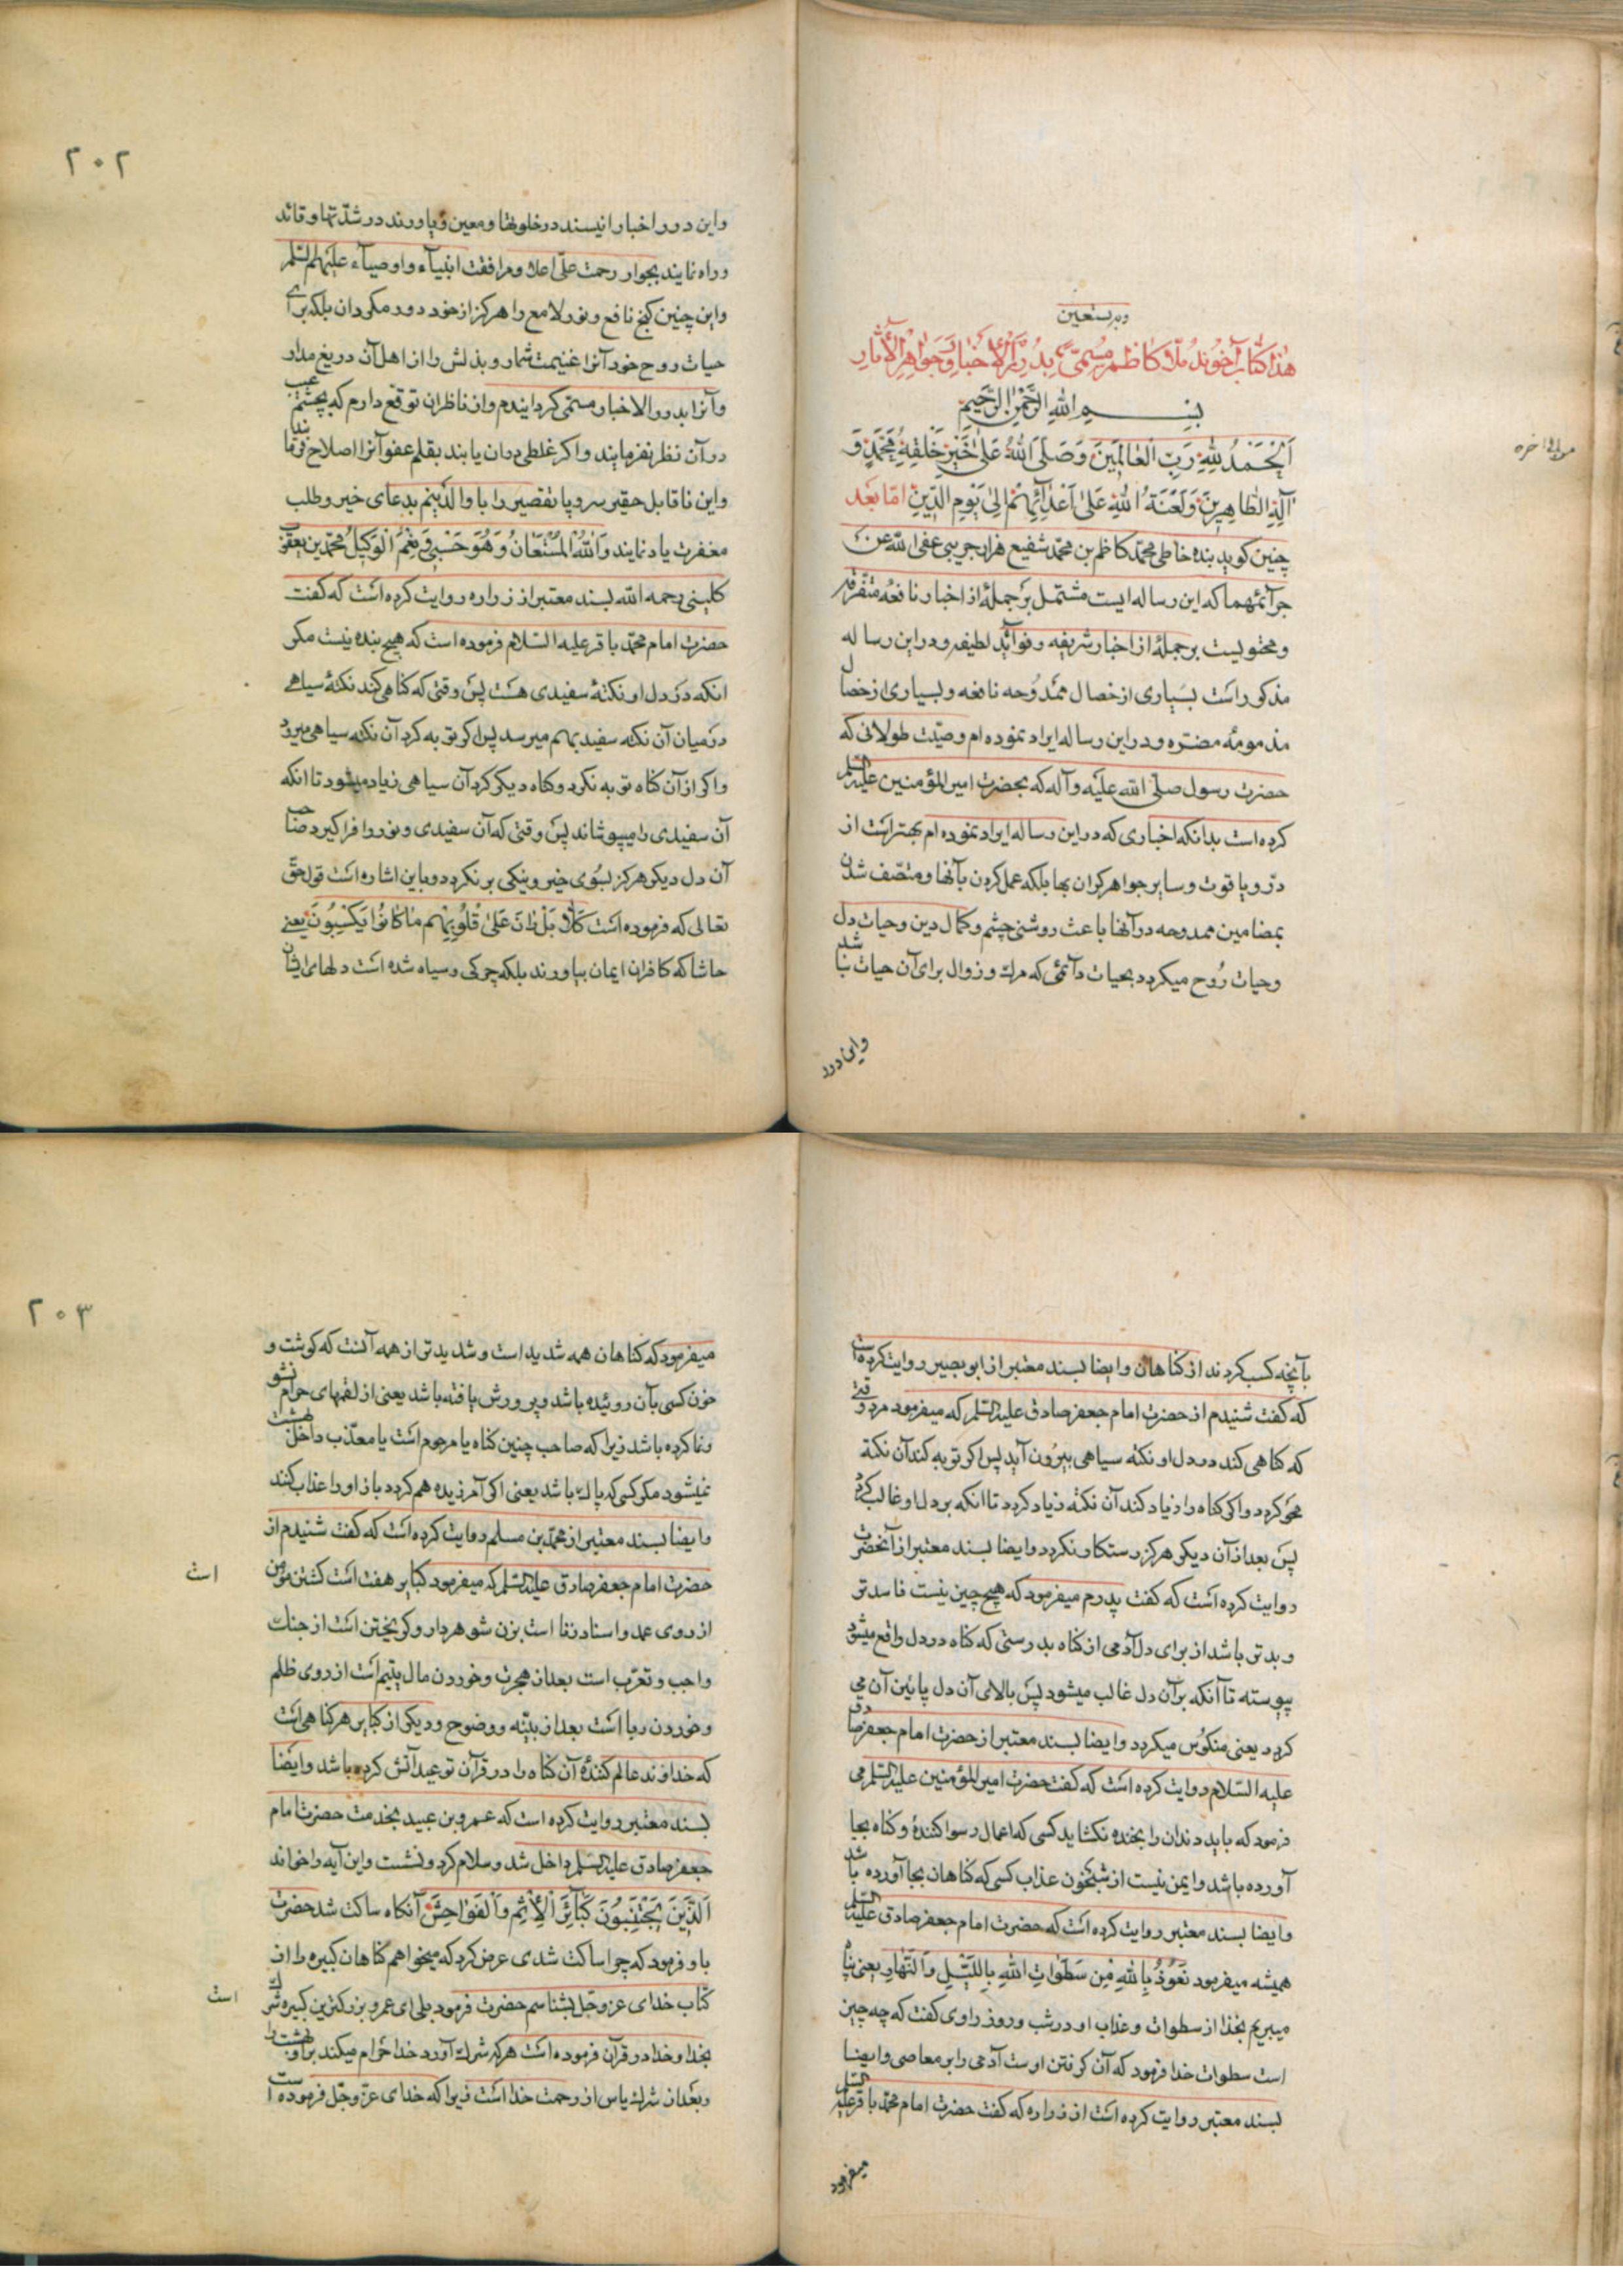 وبه نستعین
هٰذا کتاب آخوند ملّا کاظم مسمّی به بدرر الأخبار وجواهر الآثار
بسم الله الرّحمن الرّحیم
اَلْحَمْدُ لِلّٰهِ رَبِّ الْعٰالَمِینَ وَصَلَّی اللّٰهُ عَلیٰ خَیْرِ خَلْقِهِ مُحَمَّدٍ وَ
آلِهِ الطّٰاهِرِینَ وَلَعْنَةُ اللّٰهِ عَلیٰ اَعْدٰائِهِمْ اِلیٰ یَوْمِ الدّینِ امّا بَعْد
چنین کوید بنده خاطی محمّد کاظم بن محمّد شفیع هزارجریبی عفی اللّه عن
جرآئمهما که این رساله ایست مشتمل بر جملهٔ از اخبار نافعهٔ متفرّقه
ومحتویست بر جملهٔ از اخبار شریفه وفوآئد لطیفه ودر این رساله
مذکور است بسیاری از خصال ممدوحه نافعه وبسیاری از خصال
مذمومهٔ مضرّه ودر این رساله ایراد نموده ام وصیّت طولانی که
حضرت رسول صلّی اللّه علیه وآله که بحضرت امیر المؤمنین علیه السّلم
کرده است بدانکه اخباری که در این رساله ایراد نموده ام بهتر است از
درّ ویاقوت وسایر جواهر کران بها بلکه عمل کردن بآنها ومتّصف شدن
بمضامین ممدوحه در آنها باعث روشنی چشم وکمال دین وحیات دل
وحیات رُوح میکردد بحیات دآئمی که مرك وزوال برای آن حیات نباشد
واین درر
مولی الی آخره
٢٠٢
واین درر اخبار انیسند در خلوتها ومعین ویاورند در شدّتها وقائد
وراه نمایند بجوار رحمت علیّ اعلا ومرافقت انبیآء واوصیآء علیهم السّلم
واین چنین کنج نافع ونور لامع را هرکز از خود دور مکردان بلکه برای
حیات روح خود آنرا غنیمت شمار وبذلش را از اهل آن دریغ مدار
وآنرا بدرر الاخبار مسمّی کردانیدم واز ناظران توقع دارم که بچشم عیب
در آن نظر نفرمایند واکر غلطی در آن یابند بقلم عفو آنرا اصلاح فرمایند
واین ناقابل حقیر سروپا تقصیر را با والدینم بدعای خیر وطلب
مغفرت یاد نمایند وَاللّٰهُ الْمُسْتَعٰانُ وَهُوَ حَسْبِی وَنِعْمَ الْوَکِیلُ محمّد بن یعقوب
کلینی رحمه اللّه بسند معتبر از زراره روایت کرده است که کفت
حضرت امام محمّد باقر علیه السّلام فرموده است که هیچ بنده نیست مکر
انکه در دل او نکتهٔ سفیدی هست پس وقتی که کناهی کند نکتهٔ سیاهی
در میان آن نکته سفید بهم میرسد پس اکر توبه کرد آن نکته سیاهی میرود
واکر از آن کناه توبه نکرد وکناه دیکر کرد آن سیاهی زیاد میشود تا انکه
آن سفیدی را میپوشاند پس وقتی که آن سفیدی ونور را فراکیرد صاحب
آن دل دیکر هرکز بسوی خیر ونیکی بر نکردد وباین اشاره است قول حق
تعالی که فرموده است کَلّٰا بَلْ رٰانَ عَلیٰ قُلُوبِهِمْ مٰا کٰانُوا یَکْسِبُونَ یعنی
حاشا که کافران ایمان بیاورند بلکه چرکی وسیاه شده است دلهای ایشان
بآنچه کسب کردند از کناهان وایضا بسند معتبر از ابو بصیر روایت کرده است
که کفت شنیدم از حضرت امام جعفر صادق علیه السّلم که میفرمود مرد وقتی
که کناهی کند در دل او نکته سیاهی بیرون آید پس اکر توبه کند آن نکتة
محو کردد واکر کناه را زیاد کند آن نکته زیاد کردد تا انکه بر دل او غالب کردد
پس بعد از آن دیکر هرکز رستکار نکردد وایضا بسند معتبر از آنحضرت
روایت کرده است که کفت پدرم میفرمود که هیچ چیز نیست فاسدتر
وبدتر باشد از برای دل آدمی از کناه بدرستی که کناه در دل واقع میشود
پیوسته تا آنکه بر آن دل غالب میشود پس بالای آن دل پائین آن می
کردد یعنی منکوس میکردد وایضا بسند معتبر از حضرت امام جعفر صادق
علیه السّلام روایت کرده است که کفت حضرت امیر المؤمنین علیه السّلم می
فرمود که باید دندان را بخنده نکشاید کسی که اعمال رسوا کنندهٔ وکناه بجا
آورده باشد وایمن نیست از شبیخون عذاب کسی که کناهان بجا آورده باشد
وایضا بسند معتبر روایت کرده است که حضرت امام جعفر صادق علیه السّلم
همیشه میفرمود نَعُوذُ بِاللّٰهِ مِنْ سَطَوٰاتِ اللّٰهِ بِاللَّیْلِ وَالنَّهٰارِ یعنی پناه
میبریم بخدا از سطوات وعذاب او در شب وروز راوی کفت که چه چیز
است سطوات خدا فرمود که آن کرفتن اوست آدمی را بر معاصی وایضا
بسند معتبر روایت کرده است از زراره که کفت حضرت امام محمّد باقر علیه السّلم
میفرمود
٢٠٣
میفرمود که کناهان همه شدید است وشدیدتر از همه آنست که کوشت و
خون کسی بآن روئیده باشد وپرورش یافته باشد یعنی از لقمهای حرام نشو
ونما کرده باشد زیرا که صاحب چنین کناه یا مرحوم است یا معذّب داخل بهشت
نمیشود مکر کسی که پاك باشد یعنی اکر آمرزیده هم کردد باز او را عذاب کند
وایضا بسند معتبر از محمّد بن مسلم روایت کرده است که کفت شنیدم از
حضرت امام جعفر صادق علیه السّلم که میفرمود کبایر هفت است کشتن مؤمن
است
از روی عمد واسناد زنا است بزن شوهردار وکریختن است از جنك
واجب وتعرّب است بعد از هجرت وخوردن مال یتیم است از روی ظلم
وخوردن ربا است بعد از بیّنه ووضوح ودیکر از کبایر هر کناهی است
که خداوند عالم کنندهٔ آن کناه را در قرآن توعید آتش کرده باشد وایضا
بسند معتبر روایت کرده است که عمرو بن عبید بخدمت حضرت امام
جعفر صادق علیه السّلم داخل شد وسلام کرد ونشست واین آیه را خواند
اَلَّذِینَ یَجْتَنِبُونَ کَبٰائِرَ الْاِثْمِ وَالْفَوٰاحِشَ آنکاه ساکت شد حضرت
باو فرمود که چرا ساکت شدی عرض کرد که میخواهم کناهان کبیره را از
کتاب خدای عز وجل بشناسم حضرت فرمود بلی ای عمرو بزرکترین کبیره شرك
است
بخدا وخدا در قرآن فرموده است هرکه شرك آورد خدا حرام میکند بر او بهشت را
وبعد از شرك یاس از رحمت خدا است زیرا که خدای عزّ وجل فرموده است